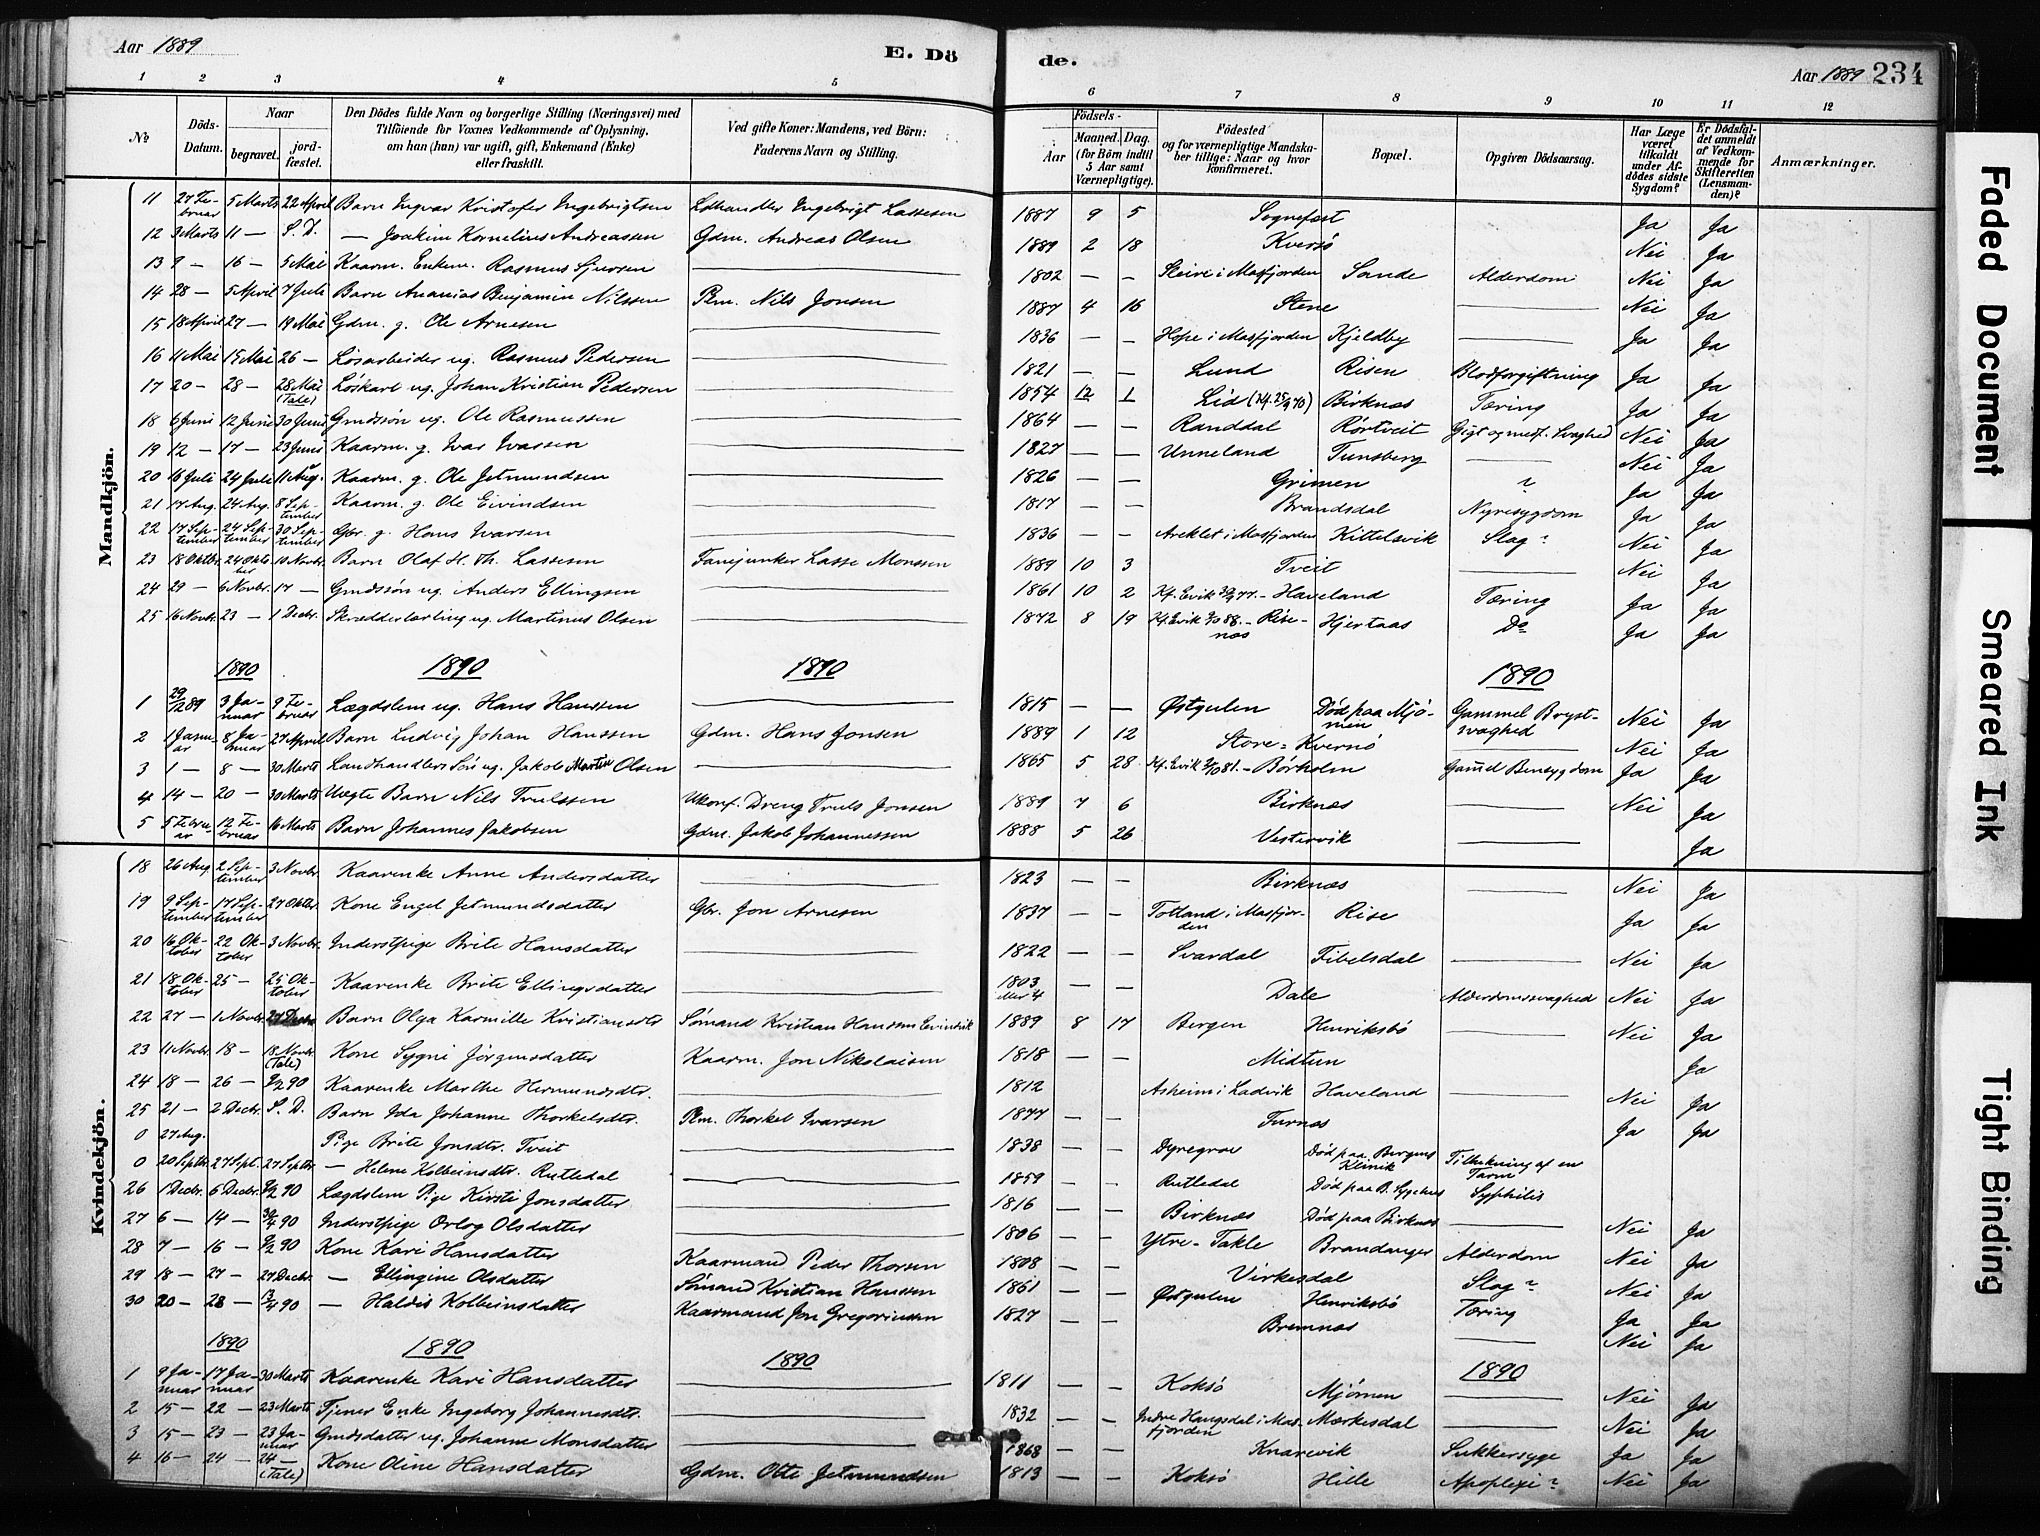 Aar 1889
E. Dö
de.
Aar 1889 234
1 2 3 4 5
6 7 8 9 10 11 12
No
Döds-Datum.
Naar
begravet.
jordfæstet.
Den Dödes fulde Navn og borgerlige Stilling (Næringsvei) med
Tilföiende for Voxnes Vedkommende af Oplysning,
om han (hun) var ugift, gift, Enkemand (Enke)
eller fraskilt.
Ved gifte Koner: Mandens, ved Börn:
Faderens Navn og Stilling.
Födsels-
Aar
Maaned. Dag.
(for Börn indtil
5 Aar samt
Værnepligtige).
Födested
og for værnepligtige Mandska-
ber tillige: Naar og hvor
konfirmeret.
Bopæl.
Opgiven Dödsaarsag.
Har Læge
været
tilkaldt
under Af-
dödes sidste
Sygdom?
Er Dödsfal-
det anmeldt
af Vedkom-
mende for
Skifteretten
(Lensman-
den)?
Anmærkninger.
Mandkjön.
11 27 Februar 5 Marts 22 April Barn Ingvar Kristofer Ingebrigtsen Ldhandler Ingebrigt Lassesen 1887 9 5 Sognefæst Ja Ja
12 3 Marts 11 — S. D. — Joakim Kornelius Andreassen Gdm. Andreas Olsen 1889 2 18 Kversö Nei Ja
13 9 — 16 — 5 Mai Kaarm. Enkem. Rasmus Sjursen 1802 — — Steire i Masfjorden Sande Alderdom Nei Ja
14 28 — 5 April 7 Juli Barn Ananias Benjamin Nilssen Plm. Nils Jonsen 1887 4 16 Stene Nei Ja
15 18 April 27 — 19 Mai Gdm. g. Ole Arnesen 1836 — — Hope i Masfjorden Kjeldby Ja Ja
16 11 Mai 15 Mai 26 — Lösarbeider ug. Rasmus Pedersen 1821 — — Lund Risen Blodforgiftning Ja Ja
17 20 — 28 — 28 Mai (Tale) Löskarl ug. Johan Kristian Pedersen 1854 12 1 Lid Birknæs Tæring Ja Ja
18 6 Juni 12 Juni 30 Juni Gmdssön ug. Ole Rasmussen 1864 — — Randdal Rörtveit Gigt og medf. Svaghed Nei Ja
19 12 — 17 — 23 Juni Kaarm. g. Ivar Ivarsen 1827 — — Unneland Tunsberg Nei Ja
20 16 Juli 24 Juli 11 Aug. Kaarm. g. Ole Jetmundsen 1826 — — Grimen ? Ja Ja
21 17 Aug. 24 Aug. 8 September Kaarm. g. Ole Eivindsen 1817 — — Brandsdal Nyresygdom Ja Ja
22 17 September 24 September 30 September Gbr. g. Hans Ivarsen 1836 — — Areklet i Masfjorden Kittelsvik Slag? Nei Ja
23 18 Oktbr. 24 Oktober 10 Novbr. Barn Olaf H. Th. Lassesen Fanejunker Lasse Monssen 1889 10 3 Tveit Nei Ja
24 29 — 6 Novbr. 17 — Gmdssön ug. Anders Ellingsen 1861 10 2 Kf. Evik Haveland Tæring Ja Ja
25 16 Novbr. 23 — 1 Decbr. Skrædderlærling ug. Martinus Olsen 1872 8 19 Kf. Evik 88. – Risenæs Hjertaas Do Ja Ja
1890 1890 1890 1890
1 29/12 89 3 Januar 9 Februar Lægdslem ug. Hans Hanssen 1815 — — Østgulen Död paa Mjömen Gammel Brystsvaghed Nei Ja
2 1 Januar 8 Januar 27 April Barn Ludvig Johan Hanssen Gdm. Hans Jonsen 1889 1 12 Store-Kvernö Nei Ja
3 1 — 8 — 30 Marts Landhandlers Sön ug. Jakob Martin Olsen 1865 5 28 Kf. Evik 81. – Børholm Gaml Bensygdom Ja Ja
4 14 — 20 — 30 Marts Uægte Barn Nils Trulssen Ukonf. Dreng Truls Jonsen 1889 7 6 Birknæs Nei Ja
5 5 Februar 12 Februar 16 Marts Barn Johannes Jakobsen Gdm. Jakob Johannessen 1888 5 26 Vestervik Ja
Kvindekjön.
18 26 Aug. 2 September 3 Novbr. Kaarenke Anne Andersdatter 1823 — — Birknæs Nei Ja
19 9 September 17 September 27 Oktbr. Kone Engel Jetmundsdatter Gbr. Jon Arnesen 1837 — — Totland i Masfjorden Rise Ja Ja
20 16 Oktober 22 Oktober 3 Novbr. Inderstpige Brite Hansdatter 1822 — — Svardal Fibelsdal Nei Ja
21 18 Oktober 25 — 25 Oktober Kaarenke Brite Ellingsdatter 1803 eller 4 — — Dale Alderdomssvaghed Nei Ja
22 27 — 1 Novbr. 27 Decbr. Barn Olga Karmille Kristiansdtr Sömand Kristian Hanssen Eivindvik 1889 8 17 Bergen Henriksbö Nei Ja
23 11 Novbr. 18 — 18 Novbr. (Tale) Kone Sygni Jörgensdatter Kaarm. Jon Nikolaisen 1818 — — Midtun Ja
24 18 — 26 — 9/2 90 Kaarenke Marthe Hermundsdtr. 1812 Asheim i Ladvik Haveland Nei Ja
25 21 — 2 Decbr. S. D. Barn Ida Johanne Thorkelsdtr. Plm. Thorkel Ivarsen 1877 — — Furnæs Ja Ja
0 27 Aug. Pige Brite Jonsdtr. Tveit 1838 — — Dyregrov Död paa Bergens Klinik Tillukning af en Tarm
0 20 Septbr. 27 Sept. 27 Septbr — Helene Kolbeinsdtr. Rutledal 1859 — — Rutledal Död paa B. Sygehus Syphilis
26 1 Decbr. 6 Decbr. 9/2 90 Lægdslem Pige Kirsti Jonsdatter 1816 — — Birknæs Död paa Birknæs Nei Ja
27 6 — 14 — 30/4 90 Inderstpige Orlog Olsdatter 1806 — — Ytre-Takle Brandanger Alderdom Nei Ja
28 7 — 16 — 9/2 90 Kone Kari Hansdatter Kaarmand Peder Thorsen 1808 — — Virkesdal Slag? Nei Ja
29 18 — 27 — 27 Decbr. — Ellingine Olsdatter Sömand Kristian Hanssen 1861 — — Østgulen Henriksbö Tæring Ja Ja
30 20 — 28 — 13/4 90 — Haldis Kolbeinsdatter Kaarmand Jon Gregoriussen 1827 — — Bremnæs Nei Ja
1890 1890 1890 1890
1 9 Januar 17 Januar 30 Marts Kaarenke Kari Hansdatter 1811 — — Koksö Mjömen Nei Ja
2 15 — 22 — 23 Marts Tjener Enke Ingeborg Johannesdtr. 1832 — — Indre Haugsdal i Masfjorden Mærkesdal Nei Ja
3 15 — 23 — 23 Januar Gmdsdatter ug. Johanne Monsdatter 1868 — — Knarvik Sukkersyge Ja Ja
4 16 — 24 — 24 — (Tale) Kone Oline Hansdatter Gdm. Otte Jetmundsen 1813 — — Koksö Hille Apoplexi? Nei Ja
Faded Document
Smeared Ink
Tight Binding